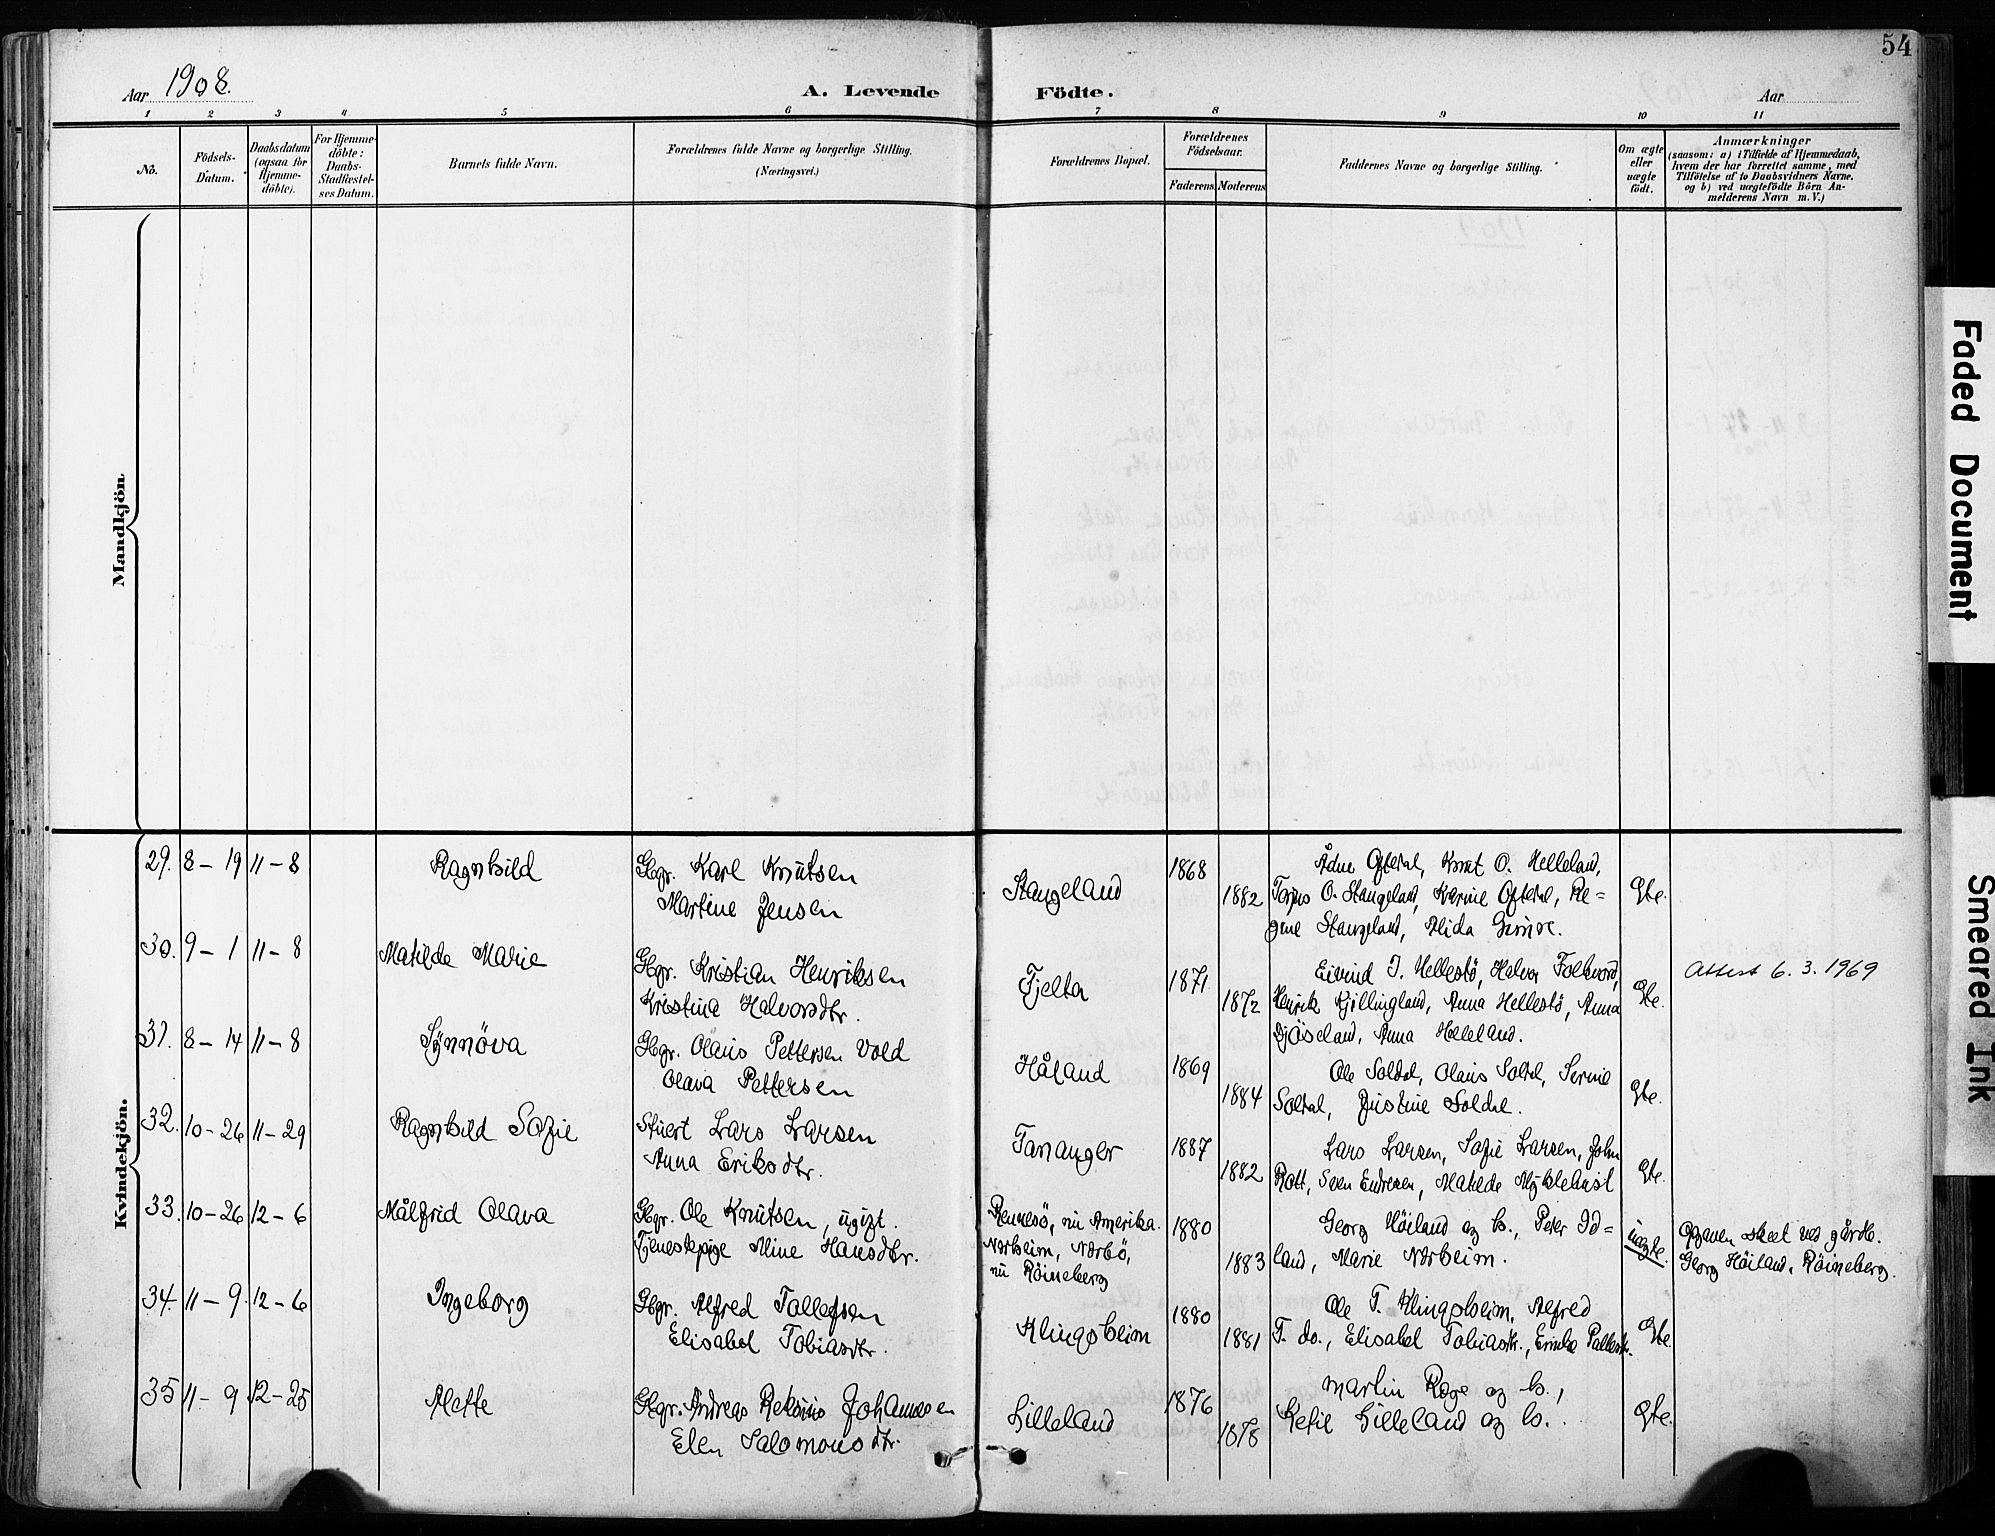 54
Aar 1908.
A. Levende Födte.
Aar
1 2 3 4 5 6 7 8 9 10 11
No.
Födsels-Datum.
Daabsdatum (ogsaa for Hjemme-döbte).
For Hjemme-döbte: Daabs-Stadfæstel-ses Datum.
Barnets fulde Navn.
Forældrenes fulde Navne og borgerlige Stilling.
(Næringsvei.)
Forældrenes Bopæl.
Forældrenes Födselsaar.
Faderens. Moderens.
Faddernes Navne og borgerlige Stilling.
Om ægte eller uægte födt.
Anmærkninger
(saasom: a) i Tilfælde af Hjemmedaab,
hvem der har forrettet samme, med
Tilföielse af to Daabsvidners Navne.
og b) ved uægtefödte Börn An-
melderens Navn m. V.)
Mandkjön.
Kvindekjön.
29. 8 – 19 11 – 8 Ragnhild
Gbr. Karl Knutsen
Martine Jensen
Stangeland 1868 1882
Ådne Oftedal, Knut O. Helleland,
O. Stangeland, Oftedal, Re=
gine Stangeland, Alida Gimre.
Gte.
30. 9 – 1 11 – 8 Matilde Marie
Gbr. Kristian Henriksen
Kristina Halvorsdtr.
Tjelta 1871 1872
Eivind J. Hellestö, Folkvord,
Henrik Anna Hellestö, Anna
Anna Helleland.
Gte.
Attest 6.3.1969
31. 8 – 14 11 – 8 Synnöva
Gbr. Olaus Pettersen Vold
Olava Pettersen
Håland 1869 1884
Ole Soldal, Olaus Soldal, Serine
Soldal, Justine Soldal.
Gte.
32. 10 – 26 11 – 29 Ragnhild Sofie
Stuert Lars Larsen
Anna Eriksdtr.
Tananger 1887 1882
Lars Larsen, Sofie Larsen, John
Rott, Sven Endresen, Matilde Myklebust
Gte.
33. 10 – 26 12 – 6 Målfrid Olava
Gbr. Ole Knutsen, ugift.
Tjenestepige Mine Hansdtr.
Rennesö, nu Amerika.
Norheim, Nærbö,
nu Röineberg
1880 1883
Georg Höiland og h., Peter Id=
land, Marie Norheim.
uægte.
Opgaven skeet ved gårdb.
Georg Höiland, Röineberg.
34. 11 – 9 12 – 6 Ingeborg
Gbr. Alfred Tollefsen
Elisabet Tobiasdtr.
Klingsheim 1880 1881
Ole T. Klingsheim, Alfred
T. do., Elisabet Tobiasdtr.,
Gte.
35 11 – 9 12 – 25 Alette
Gbr. Andreas Johannesen
Elen Salomonsdtr.
Lilleland 1876 1878
Martin Rege og h.,
Ketil Lilleland og h.
Gte.
Faded Document
Smeared Ink